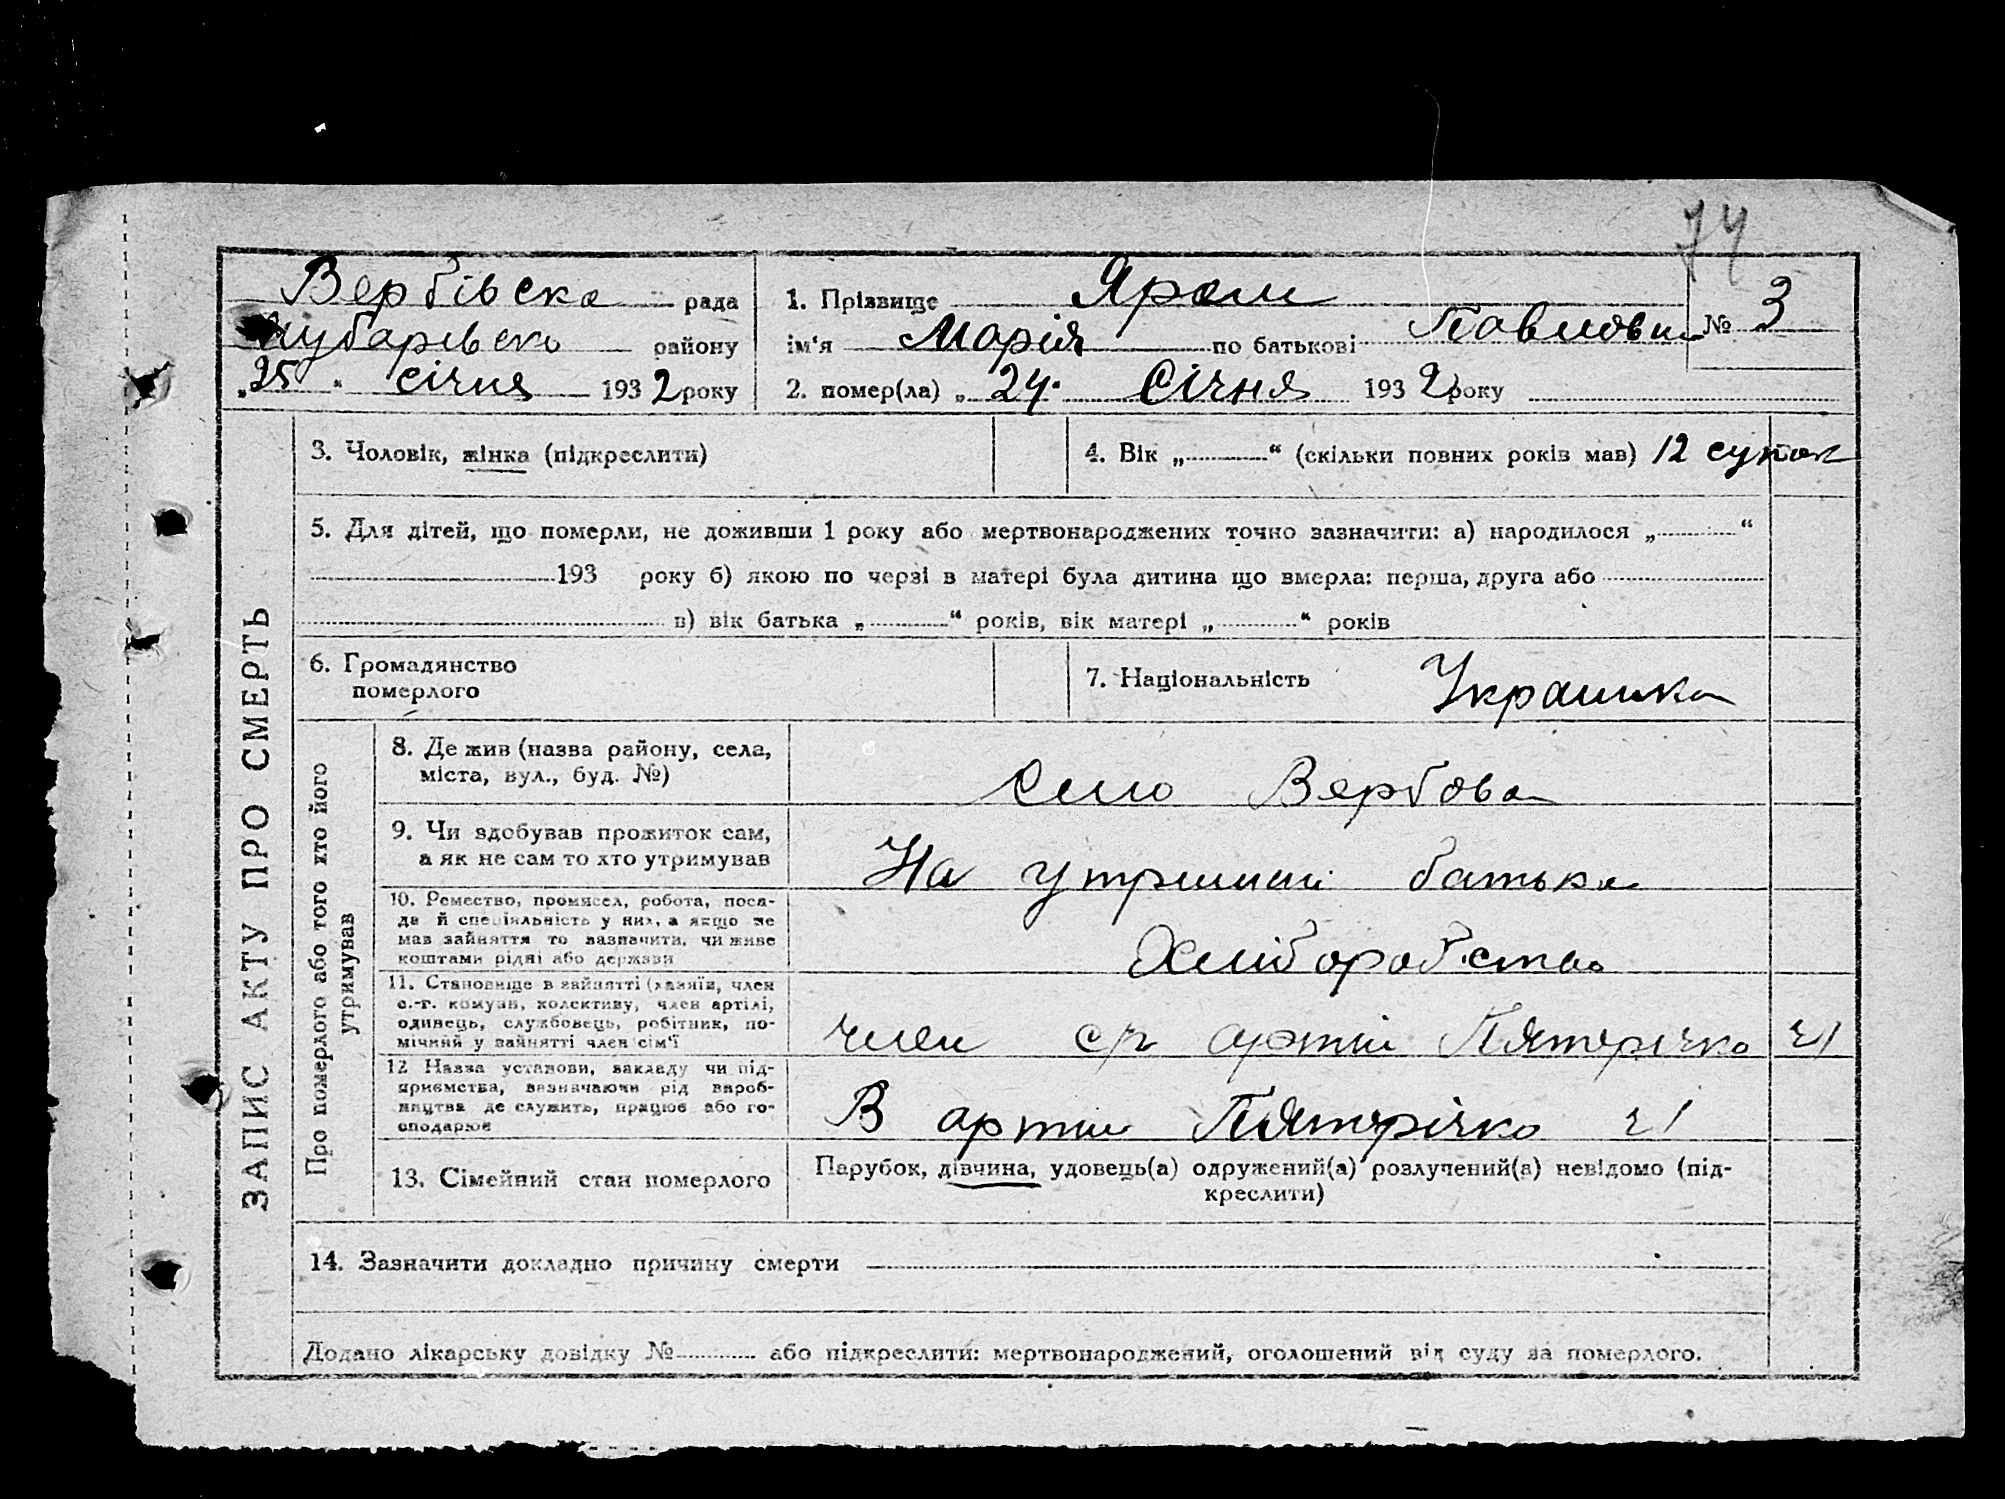 74
Вербівска рада
Чубарівско району
„25“ січня 1932 року
1. Прізвище Ярош
ім'я Марія по батькові Павловна
№ 3
2. помер(ла) „24. Січня 1932 року
ЗАПИС АКТУ ПРО СМЕРТЬ
3. Чоловік, жінка (підкреслити)
4. Вік „ “ (скільки повних років мав) 12 суток
5. Для дітей, що померли, не доживши 1 року або мертвонароджених точно зазначити: а) народилося „ “
193 року б) якою по черзі в матері була дитина що вмерла: перша, друга або
в) вік батька „ “ років, вік матері „ “ років
6. Громадянство
померлого
7. Національність Украинка
Про померлого або того хто його
утримував
8. Де жив (назва району, села,
міста, вул., буд. №)
село Вербова
9. Чи здобував прожиток сам,
а як не сам то хто утримував
На утримані батька
10. Ремество, промисел, робота, поса-
да й спеціяльність у них, а якщо не
мав зайняття то зазначити, чи живе
коштами рідні або держави
Хліборобство
11. Становище в зайнятті (хазяїн, член
с.-г. комуни, колективу, член артілі,
одинець, службовець, робітник, по-
мічний у зайнятті член сім'ї
член с/г артілі Пятирічко ч1
12 Назва установи, закладу чи під-
приємства, зазначаючи рід вироб-
ництва де служить, працює або го-
сподарює
В артілі Пятирічко ч1
13. Сімейний стан померлого
Парубок, дівчина, удовець(а) одружений(а) розлучений(а) невідомо (під-
креслити)
14. Зазначити докладно причину смерти
Додано лікарську довідку № або підкреслити: мертвонароджений, оголошений від суду за померлого.